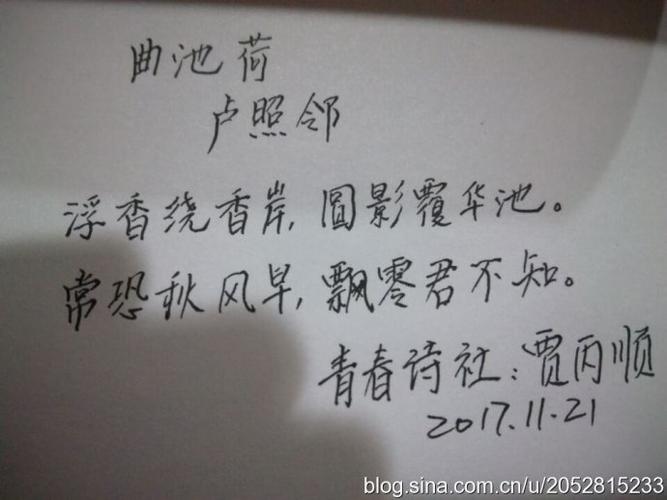 曲池荷
卢照邻
浮香绕香岸,圆影覆华池。
常恐秋风早,飘零君不知。
青春诗社:贾丙顺
2017.11.21
blog.sina.com.cn/u/2052815233